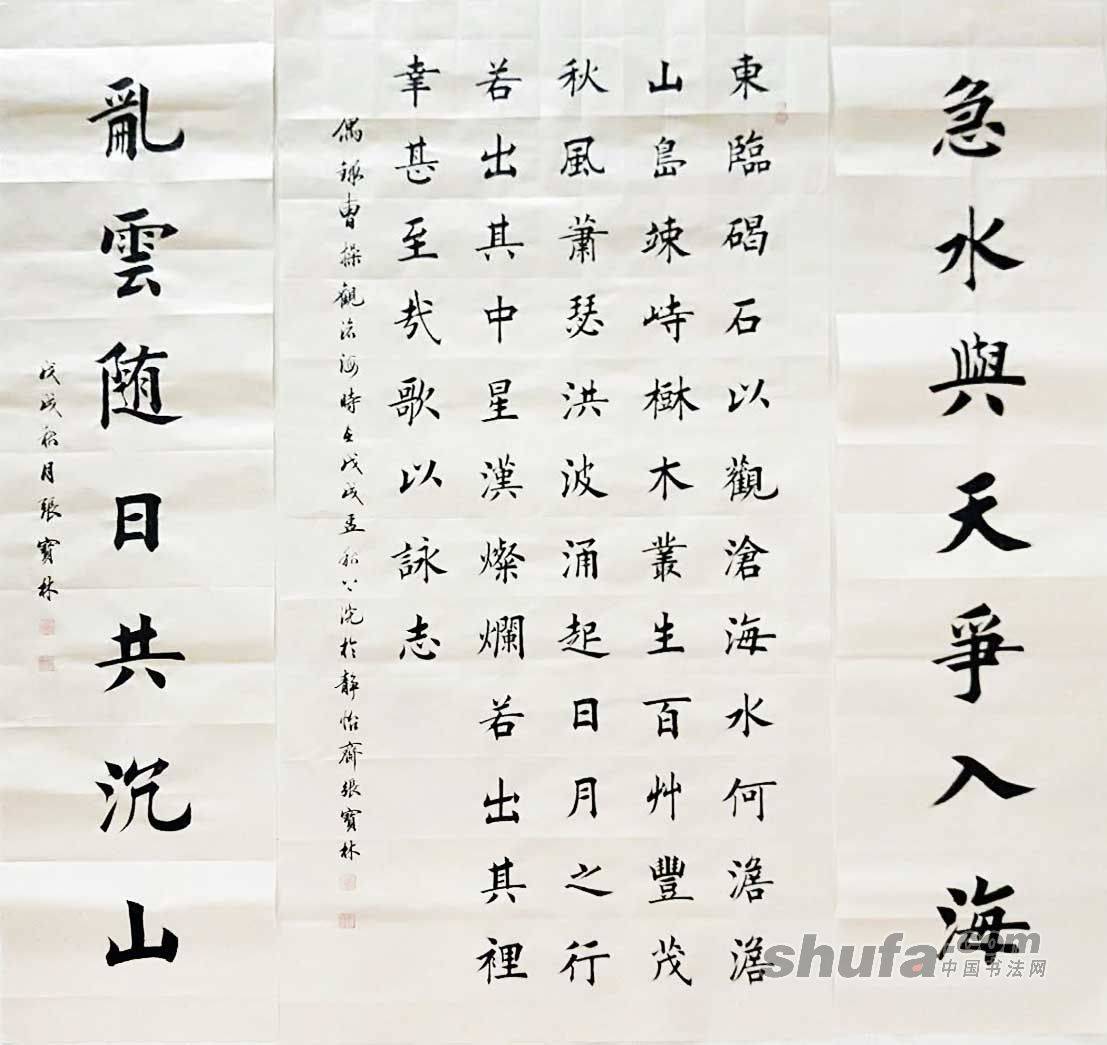 急水與天爭入海
東臨碣石以觀滄海水何澹澹
山島竦峙樹木叢生百艸豐茂
秋風蕭瑟洪波涌起日月之行
若出其中星漢燦爛若出其裡
幸甚至哉歌以詠志
偶錄曹操觀滄海時在戊戌孟秋上浣於靜怡齋張寶林
亂雲随日共沉山
戊戌秋月張寶林
shufa.com
中国书法网